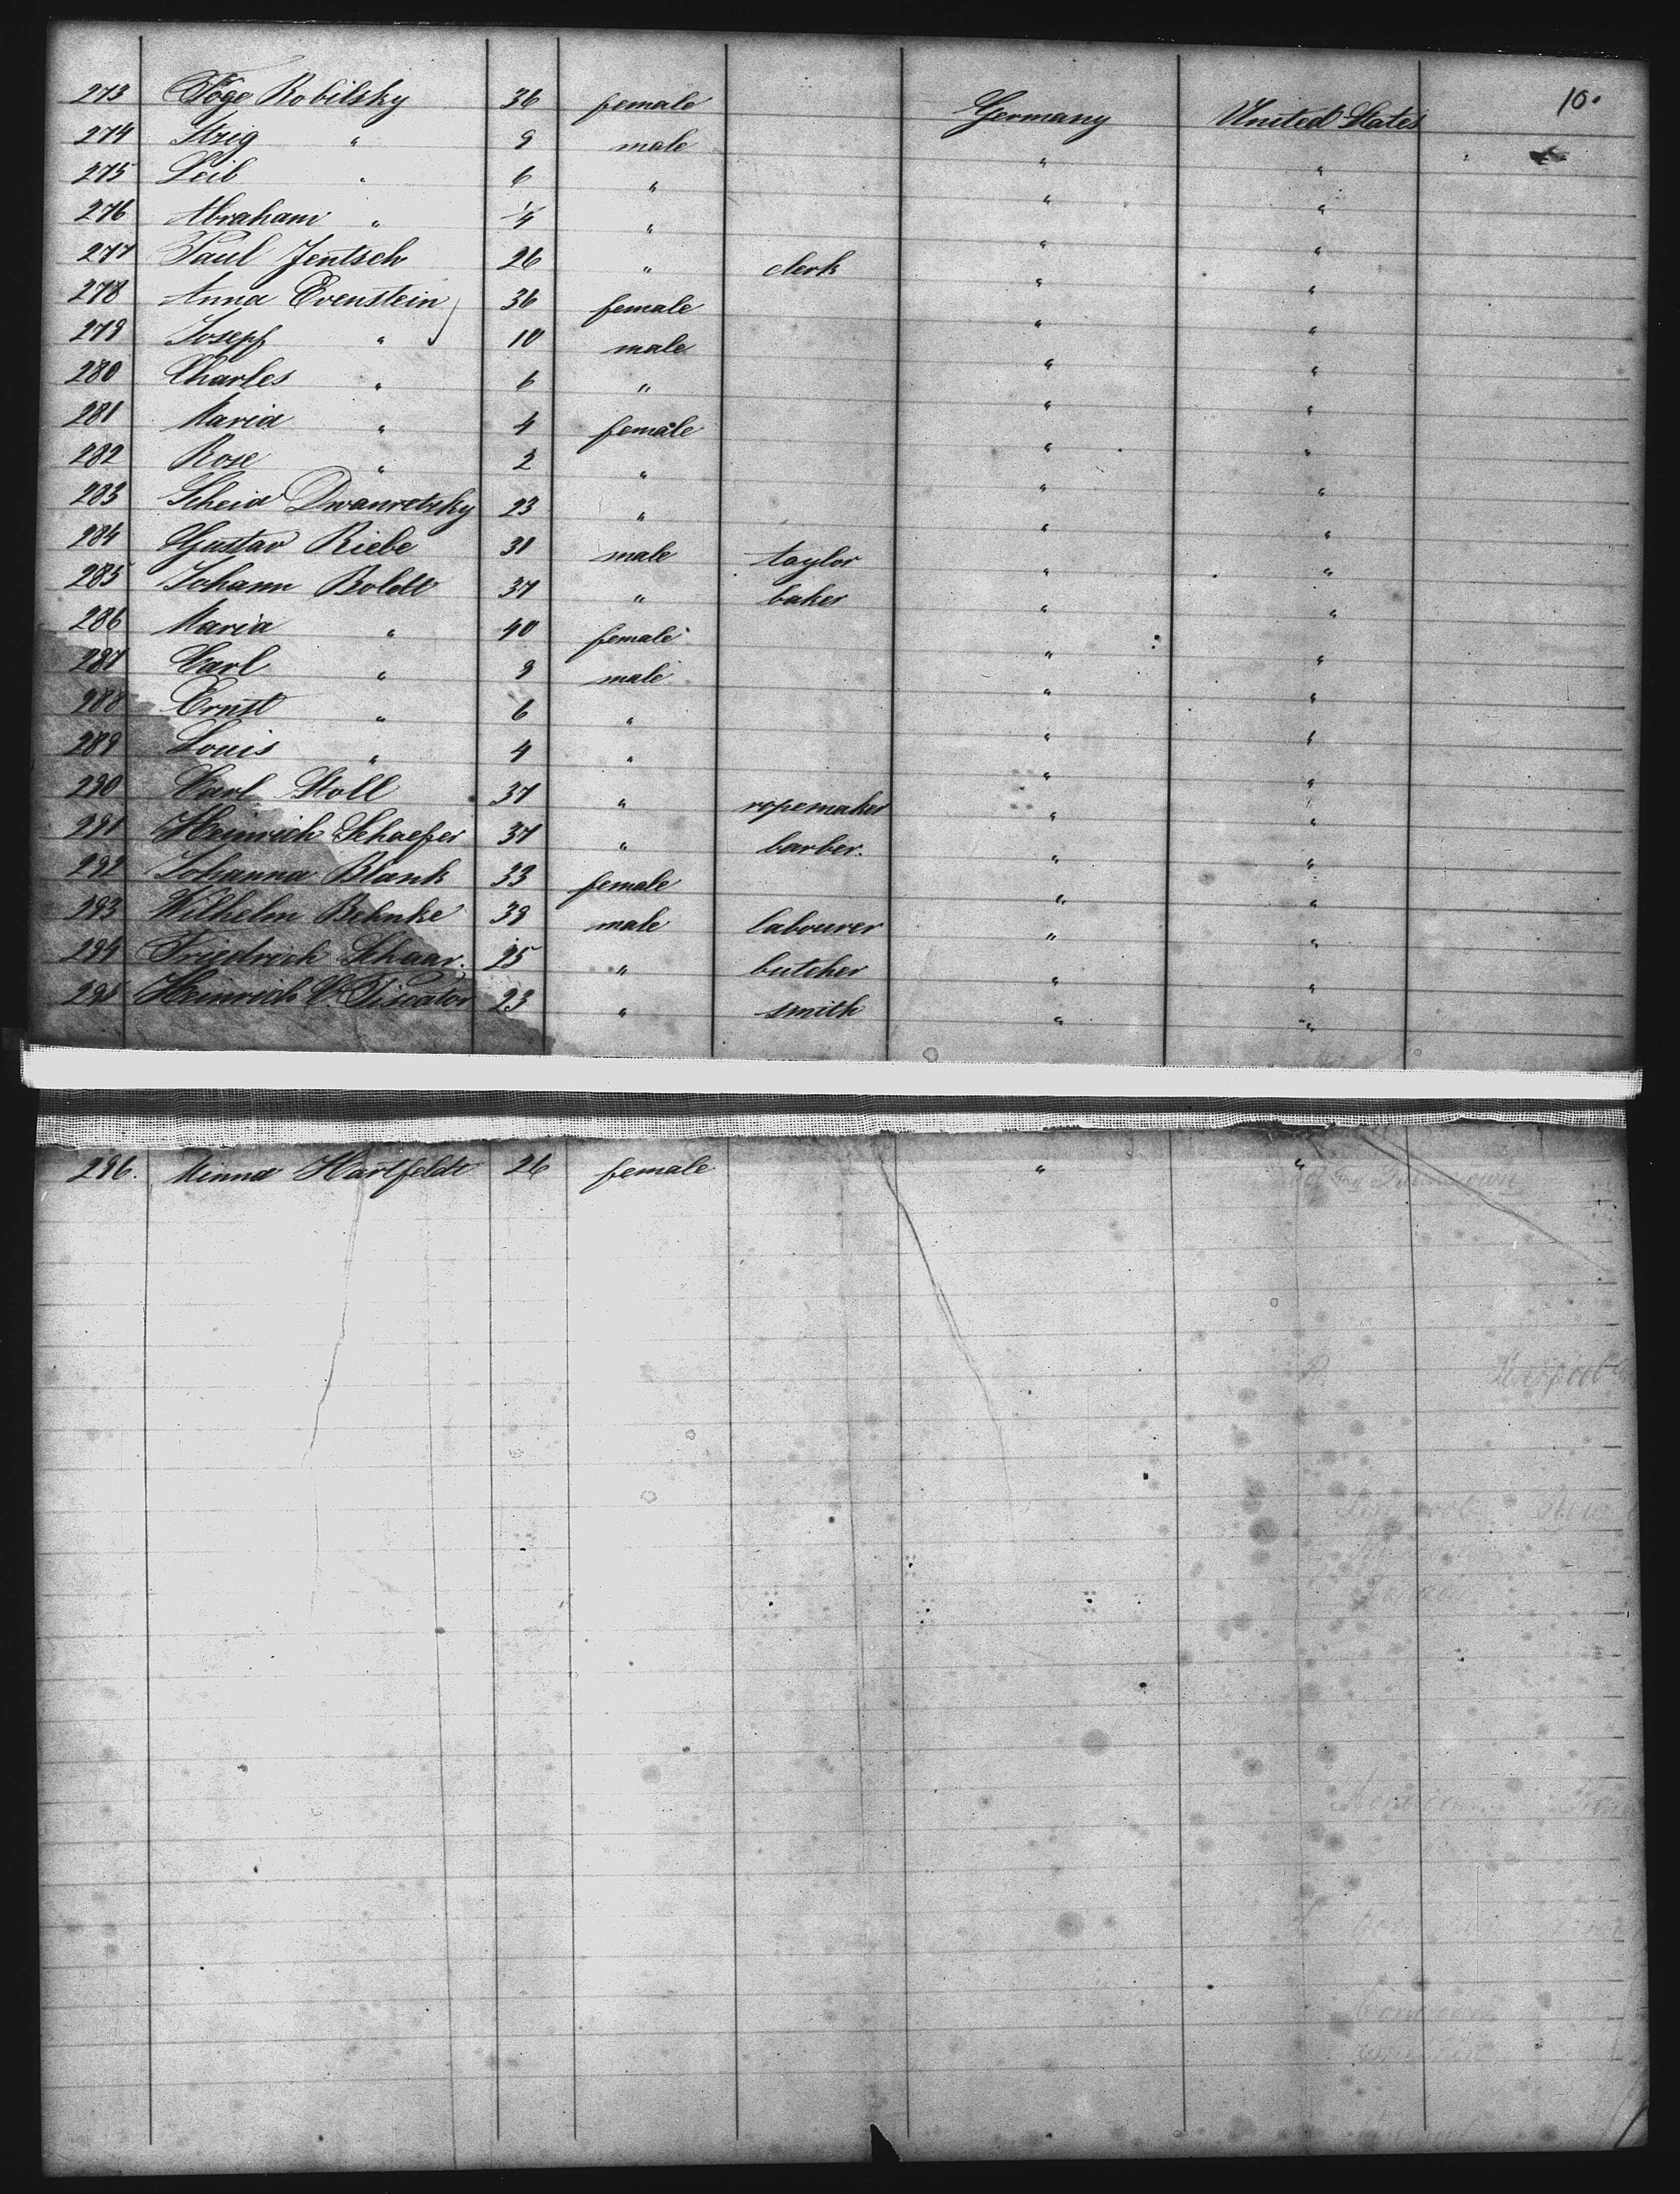 10.
273 Föge Kobilsky 36 female Germany United States
274 Hirig " 9 male " "
275 Leib " 6 " " "
276 Abraham " 1/4 " " "
277 Paul Jentsch 26 " clerk " "
278 Anna Evenstein 36 female " "
279 Josepf " 10 male " "
280 Charles " 6 " " "
281 Maria " 4 female " "
282 Rose " 2 " " "
283 Scheid Dwanretzky 23 " " "
284 Gustav Riebe 31 male taylor " "
285 Johann Boldt 37 " baker " "
286 Maria " 40 female " "
287 Carl " 9 male " "
288 Ernst " 6 " " "
289 Louis " 4 " " "
290 Carl Stoll 37 " ropemaker " "
291 Heinrich Schaefer 37 " barber. " "
292 Johanna Blank 33 female " "
293 Wilhelm Behnke 39 male labourer " "
294 Friedrich Schaar. 25 " butcher " "
295 Heinrich 23 " smith " "
296. Minna Hartfeldt 26 female " "